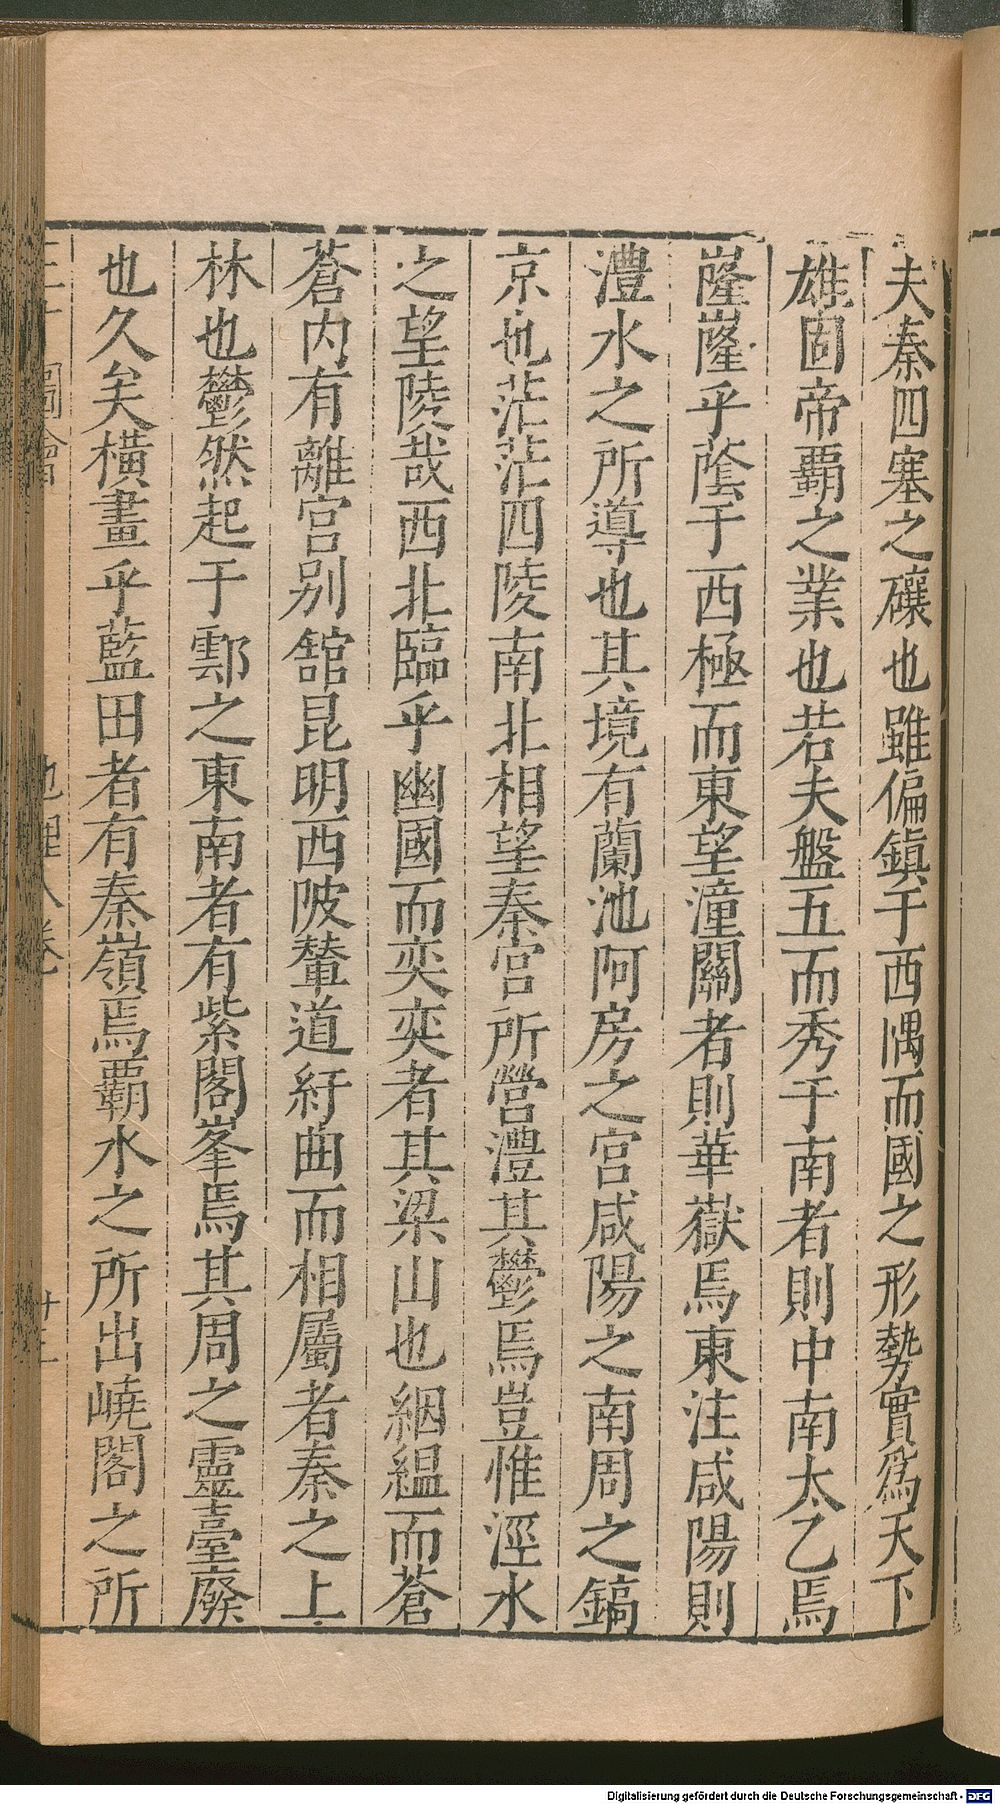 夫秦四塞之礦也雖偏鎮于西隅而國之形勢實爲天下
雄固帝覇之業也若夫盤五而秀于南者則中南太乙焉
嶐嶐乎蔭于西極而東望潼關者則華嶽焉東注咸陽則
澧水之所導也其境有蘭池阿房之宮咸陽之南周之鎬
京也茫茫四陵南北相望秦宮所營澧其鬱焉豈惟涇水
之望陵哉西北臨乎豳國而奕奕者其梁山也絪縕而蒼
蒼内有離宮别舘昆明西陂輦道紆曲而相屬者秦之上
林也鬱然起于鄠之東南者有紫閣峯焉其周之靈臺廢
也久矣橫畫乎藍田者有秦嶺焉覇水之所出嶢閣之所
三才圖會 地理八卷 十三
Digitalisierung gefördert durch die Deutsche Forschungsgemeinschaft - DFG